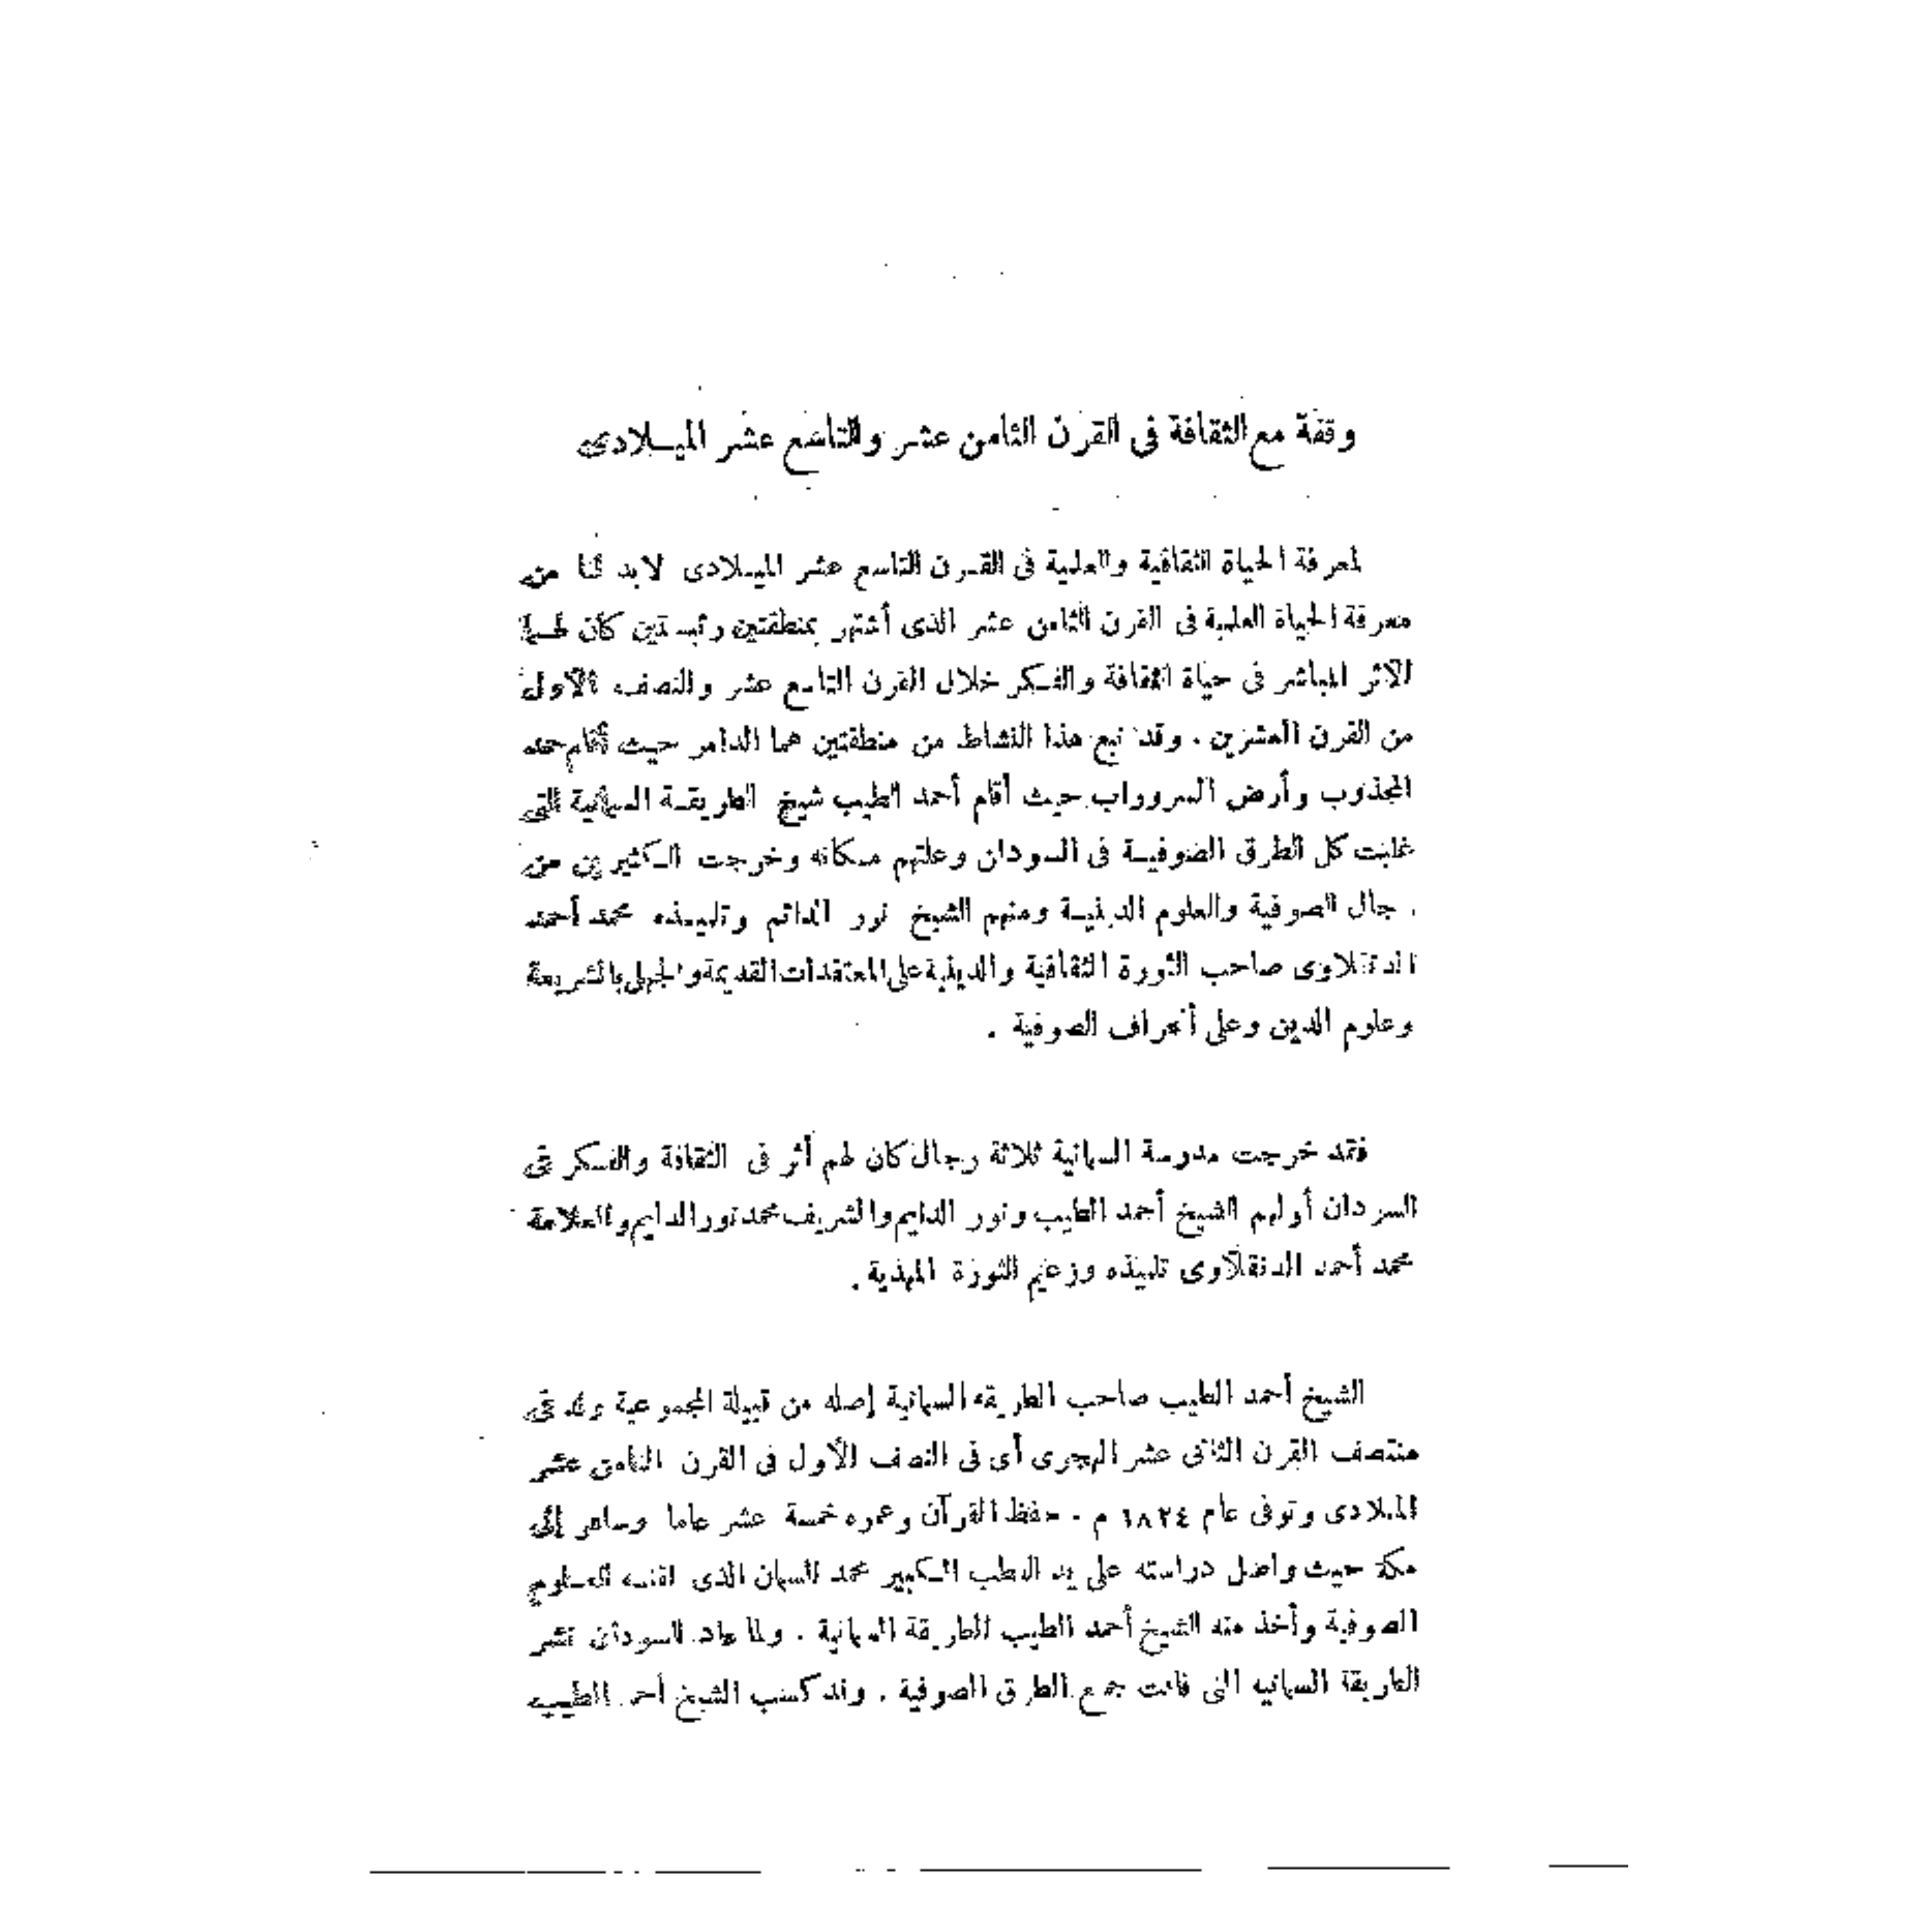 وقفة مع الثقافة فى القرن الثامن عشر والتاسع عشر الميـلادى
لمعرفة الحياة الثقافية والعلمية فى القـرن التاسع عشر الميـلادى لابد لنا من
معرفة الحياة العلمية فى القرن الثامن عشر الذى أشتهر بمنطقتين رئيستين كان لهـما
الأثر المباشر فى حياة الثقافة والفـكر خلال القرن التاسع عشر والنصف الأول
من القرن العشرين . وقد نبع هذا النشاط من منطقتين هما الدامر حيث أقام حمد
المجذوب وأرض السرورواب حيث أقام أحمد الطيب شيخ الطريقـة السمانية التى
غلبت كل الطرق الصوفيـة فى السودان وعلتهم مكانه وخرجت الـكثيرين من
رجال الصوفية والعلوم الدينيـة ومنهم الشيخ نور الدائم وتلميـذه محمد أحمد
الدنقلاوى صاحب الثورة الثقافية والدينية على المعتقدات القديمة والجهل بالشريعة
وعلوم الدين وعلى أنحراف الصوفية .
فقد خرجت مدرسة السمانية ثلاثة رجال كان لهم أثر فى الثقافة والفـكر فى
السودان أولهم الشيخ أحمد الطيب ونور الدايم والشريف محمد نور الدايم والعلامة
محمد أحمد الدنقلاوى تلميذه وزعيم الثورة المهدية .
الشيخ أحمد الطيب صاحب الطريقه السمانية إصله من قبيلة المجموعية ولد فى
منتصف القرن الثانى عشر الهجرى أى فى النصف الأول فى القرن الثامن عشر
الميلادى وتوفى عام ١٨٢٤ م - حفظ القرآن وعمره خمسة عشر عاما وسافر إلى
مكة حيث واصل دراسته على يد القطب الـكبير محمد السمان الذى لقنـه العـلوم
الصوفية وأخذ منه الشيخ أحمد الطيب الطريقة السمانية . ولما عاد السودان نشر
الطريقة السمانيه التى فاقت جميع الطرق الصوفية . وقد كسب الشيخ أحمد الطيب